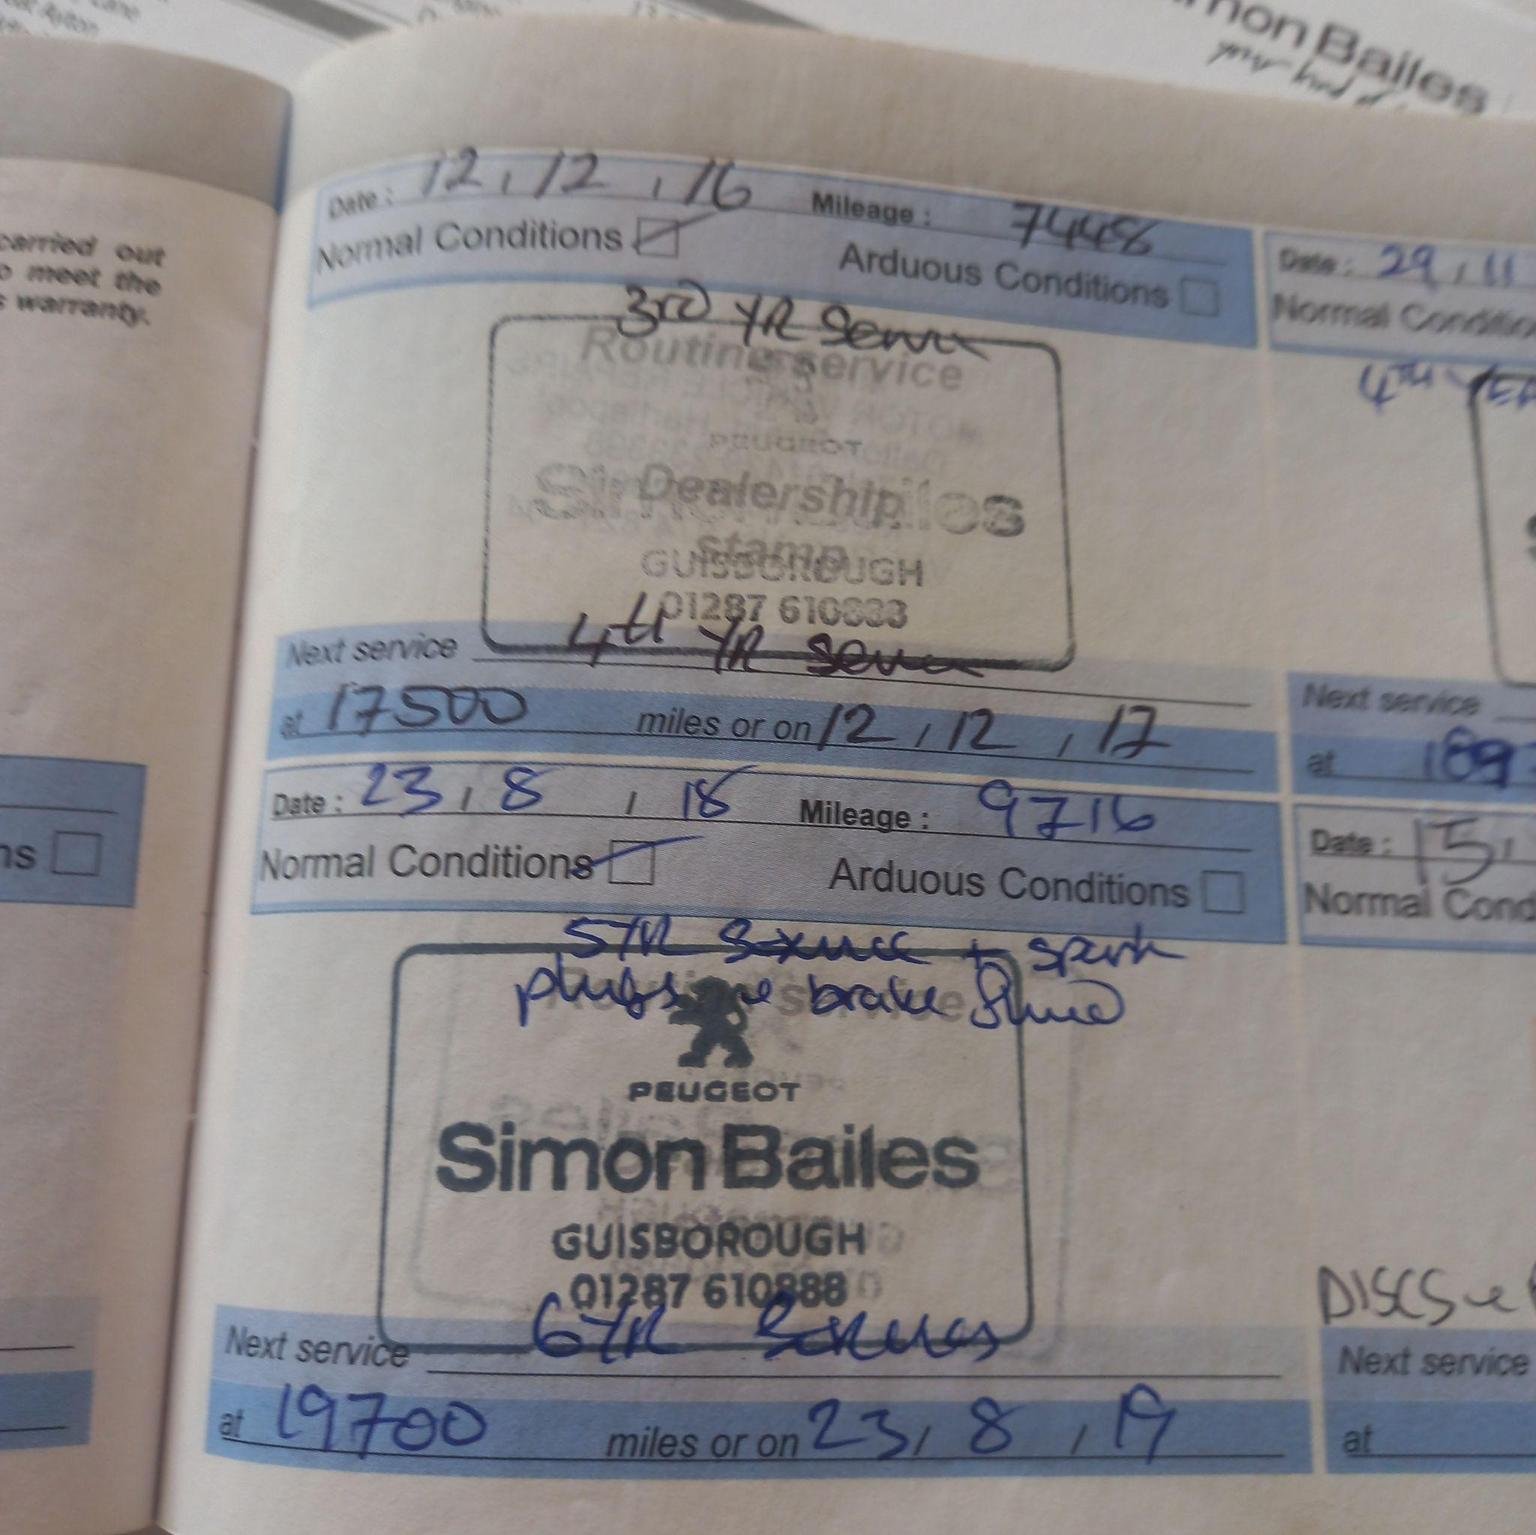 mon Bailes
carried out
o meet the
s warranty.
ns
Date : 12 , 12 , 16 Mileage : 7448
Normal Conditions Arduous Conditions
3rd YR Service
Routine service
PEUGEOT
Dealership
stamp
GUISBOROUGH
01287 610888
Next service 4th YR Service
at 17500 miles or on 12 , 12 , 17
Date : 23 , 8 , 18 Mileage : 9716
Normal Conditions Arduous Conditions
5YR Service + spark
plugs brake fluid
PEUGEOT
Simon Bailes
GUISBOROUGH
01287 610888
Next service 6YR Service
at 19700 miles or on 23 , 8 , 19
Date : 29 , 11
Normal Condition
4TH YEA
Next service
at 189
Date : 15 ,
Normal Cond
DISCS
Next service
at